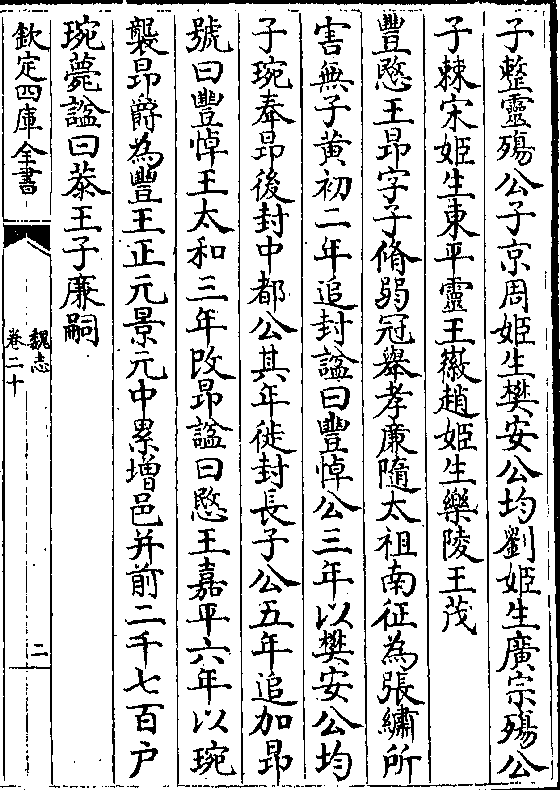 子整靈殤公子京周姬生樊安公均劉姬生廣宗殤公
子棘宋姬生東平靈王徽趙姬生樂陵王茂
豐愍王昂字子脩弱冠舉孝廉隨太祖南征為張繡所
害無子黃初二年追封諡曰豐悼公三年以樊安公均
子琬奉昂後封中都公其年徙封長子公五年追加昂
號曰豐悼王太和三年改昂諡曰愍王嘉平六年以琬
襲昂爵為豐王正元景元中累增邑并前二千七百户
琬薨諡曰恭王子廉嗣
欽定四庫全書
魏志
卷二十
二